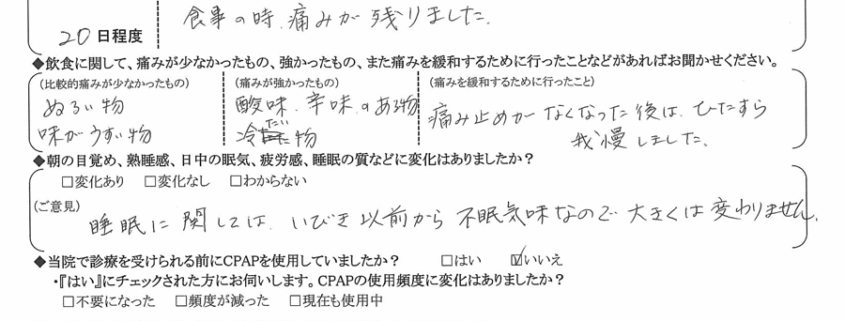 食事の時、痛みが残りました。
20日程度
◆飲食に関して、痛みが少なかったもの、強かったもの、また痛みを緩和するために行ったことなどがあればお聞かせください。
(比較的痛みが少なかったもの)
ぬるい物
味がうすい物
(痛みが強かったもの)
酸味、辛味のある物
冷たい物
(痛みを緩和するために行ったこと)
痛み止めがなくなった後は、ひたすら
我慢しました。
◆朝の目覚め、熟睡感、日中の眠気、疲労感、睡眠の質などに変化はありましたか？
□変化あり □変化なし □わからない
(ご意見)
睡眠に関しては、いびき以前から不眠気味なので大きくは変わりません。
◆当院で診療を受けられる前にCPAPを使用していましたか？ □はい ☑いいえ
・『はい』にチェックされた方にお伺いします。CPAPの使用頻度に変化はありましたか？
□不要になった □頻度が減った □現在も使用中